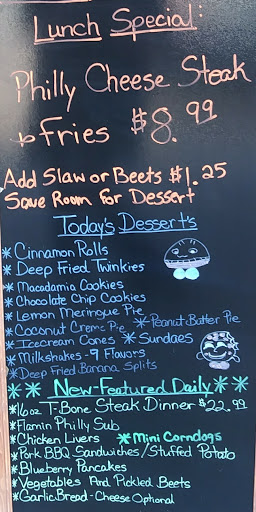 Lunch Special:
Philly Cheese Steak
& Fries $8.99
Add Slaw or Beets $1.25
Save Room For Dessert
Today's Dessert's
* Cinnamon Rolls
* Deep Fried Twinkies
* Macadamia Cookies
* Chocolate Chip Cookies
* Lemon Meringue Pie
* Coconut Creme Pie * Peanut Butter Pie
* Icecream Cones * Sundaes
* Milkshakes - 9 Flavors
* Deep Fried Banana Splits
** New-Featured Daily **
* 16oz T-Bone Steak Dinner $22.99
* Flamin Philly Sub
* Chicken Livers * Mini Corndogs
* Pork BBQ Sandwiches/Stuffed Potato
* Blueberry Pancakes
* Vegetables And Pickled Beets
* Garlic Bread - Cheese Optional